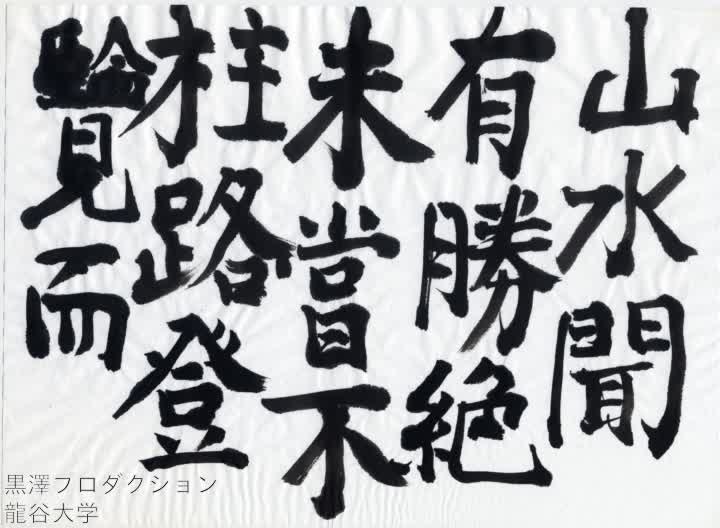 山水聞
有勝絶
未嘗不
柱路登
覽而
黒澤フロダクション
龍谷大学